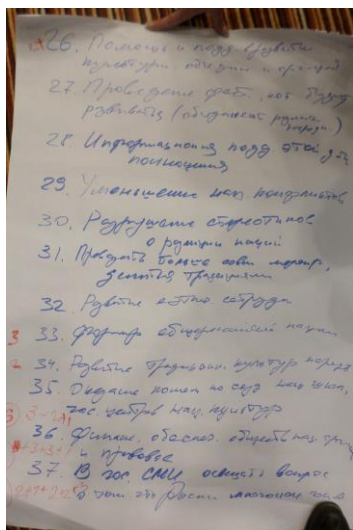 26. Помощь и подд развити
культурн. общин и организ
27. Проведение фест., кот будут
развивать (объединяют разные
народы.)
28. Информационная подд этой де
29. Уменьшение нац. конфликтов
30. Разрушение стереотипов
о разных наций
31. Проводить больше совм мероп.,
делиться традициями
32. Развитие этно сотруд
3 33. Формир общероссийской нации
34. Развитие традицион. культур народ
35. Оказание помощи по созд нац школ,
гос. центров нац. культур
36. Финанс. обеспеч. обществ нац. орг
и правовое
37. В гос. СМИ освещать вопрос
о том, что Россия